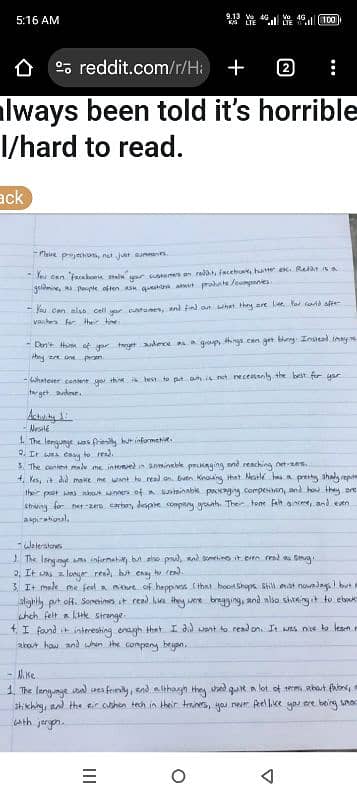 5:16 AM
9.13 K/S Vo LTE 4G Vo LTE 4G 100
reddit.com/r/Ha
2
always been told it's horrible
l/hard to read.
ack
- Make projections, not just summaries.
- You can "facebook stalk" your customers on reddit, facebook, twitter etc. Reddit is a
goldmine, as people often ask questions about products/companies.
- You can also call your customers, and find out what they are like. You could offer
vouchers for their time.
- Don't think of your target audience as a group, things can get blurry. Instead
they are one person.
- Whatever content you think is best to put out, is not necessarily the best for your
target audience.
Activity 1:
- Nestlé
1. The language was friendly but informative.
2. It was easy to read.
3. The content made me interested in sustainable packaging and reaching net-zero.
4. Yes, it did make me want to read on. Even knowing that Nestle has a pretty shady
their post was about winners of a sustainable packaging competition, and how they are
striving for net-zero carbon, despite company growth. Their tone felt sincere, and even
aspirational.
- Waterstones
1. The language was informative, but also proud, and sometimes it even read as smug.
2. It was a longer read, but easy to read.
3. It made me feel a mixture of happiness (that bookshops still exist nowadays) but
slightly put off. Sometimes it read like they were bragging, and also
which felt a little strange.
4. I found it interesting enough that I did want to read on. It was nice to learn
about how and when the company began.
- Nike
1. The language used was friendly, and although they used quite a lot of terms about fabric,
stitching, and the air cushion tech in their trainers, you never feel like you are being
with jargon.